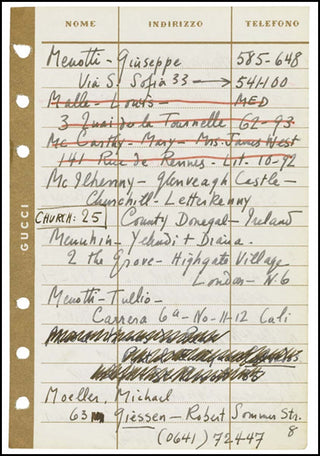 NOME INDIRIZZO TELEFONO
Menotti - Giuseppe 585-648
Via S. Sofia 33 → 541100
Malle - Louis - MED
3 Quai de la Tournelle 62-93
Mc Carthy - Mary - Mrs. James West
141 Rue de Rennes - Lit. 10-92
Mc Ilhenny - Glenveagh Castle -
Churchill - Letterkenny
CHURCH: 25
County Donegal - Ireland
GUCCI
Menuhin - Yehudi + Diana.
2 the Grove - Highgate Village
London - N.6
Menotti - Tullio -
Carrera 6a - No - 11-12 Cali
Moeller, Michael
63 Giessen - Robert Sommer Str.
8
(0641) 72447